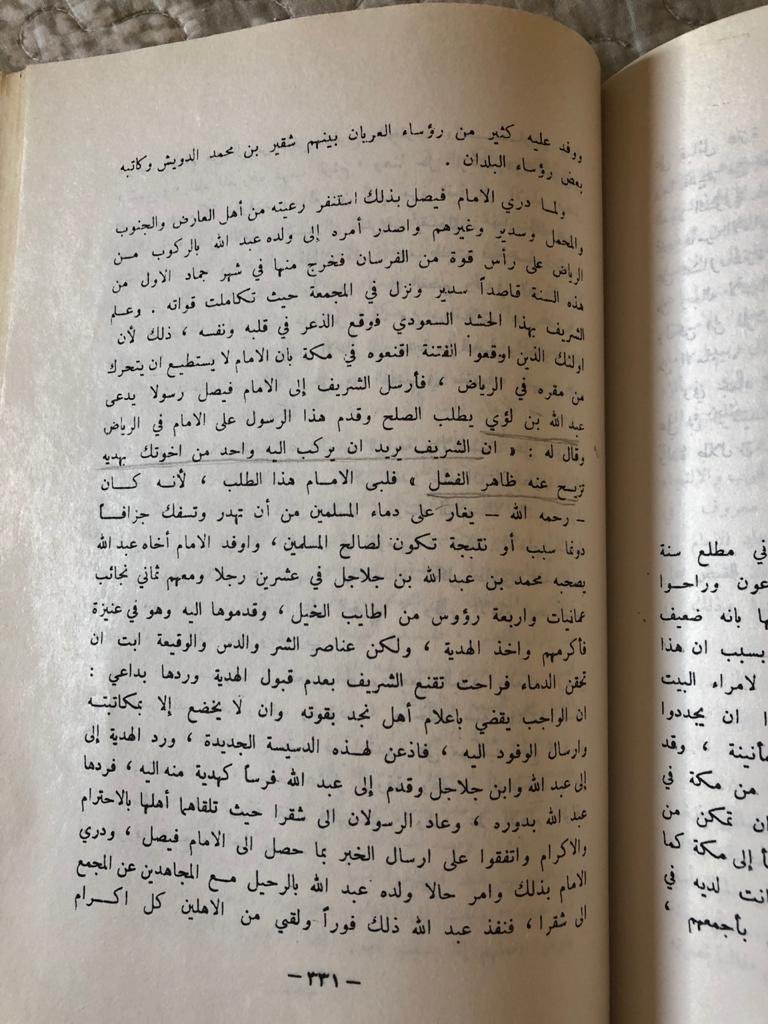 ووفد عليه كثير من رؤساء العربان بينهم شقير بن محمد الدويش وكاتبه
بعض رؤساء البلدان .
ولما دري الامام فيصل بذلك استنفر رعيته من أهل العارض والجنوب
والمحمل وسدير وغيرهم واصدر أمره إلى ولده عبد الله بالركوب من
الرياض على رأس قوة من الفرسان فخرج منها في شهر جماد الاول من
هذه السنة قاصداً سدير ونزل في المجمعة حيث تكاملت قواته . وعلم
الشريف بهذا الحشد السعودي فوقع الذعر في قلبه ونفسه ، ذلك لأن
اولئك الذين اوقعوا الفتنة اقنعوه في مكة بان الامام لا يستطيع ان يتحرك
من مقره في الرياض ، فأرسل الشريف إلى الامام فيصل رسولا يدعى
عبد الله بن لؤي يطلب الصلح وقدم هذا الرسول على الامام في الرياض
وقال له : « ان الشريف يريد ان يركب اليه واحد من اخوتك بهديه
تزيح عنه ظاهر الفشل » فلبى الامام هذا الطلب ، لأنه كان
– رحمه الله – يغار على دماء المسلمين من أن تهدر وتسفك جزافاً
دونما سبب أو نتيجة تكون لصالح المسلمين ، واوفد الامام أخاه عبد الله
يصحبه محمد بن عبد الله بن جلاجل في عشرين رجلا ومعهم ثماني نجائب
عمانيات واربعة رؤوس من اطايب الخيل ، وقدموها اليه وهو في عنيزة
فأكرمهم واخذ الهدية ، ولكن عناصر الشر والدس والوقيعة ابت ان
تحقن الدماء فراحت تقنع الشريف بعدم قبول الهدية وردها بداعي :
ان الواجب يقضي باعلام أهل نجد بقوته وان لا يخضع إلا بمكاتبته
وارسال الوفود اليه ، فاذعن لهذه الدسيسة الجديدة ، ورد الهدية إلى
إلى عبد الله وابن جلاجل وقدم إلى عبد الله فرساً كهدية منه اليه ، فردها
عبد الله بدوره ، وعاد الرسولان الى شقرا حيث تلقاهما أهلها بالاحترام
والاكرام واتفقوا على ارسال الخبر بما حصل الى الامام فيصل ، ودري
الامام بذلك وامر حالا ولده عبد الله بالرحيل مع المجاهدين عن المجمع
الى شقرا ، فنفذ عبد الله ذلك فوراً ولقي من الاهلين كل اكرام
– ٣٣١ –
في مطلع سنة
وراحوا
بانه ضعيف
بسبب ان هذا
لامراء البيت
ان يجددوا
، وقد
من مكة في
تمكن من
إلى مكة كما
لديه في
بأجمعهم ،